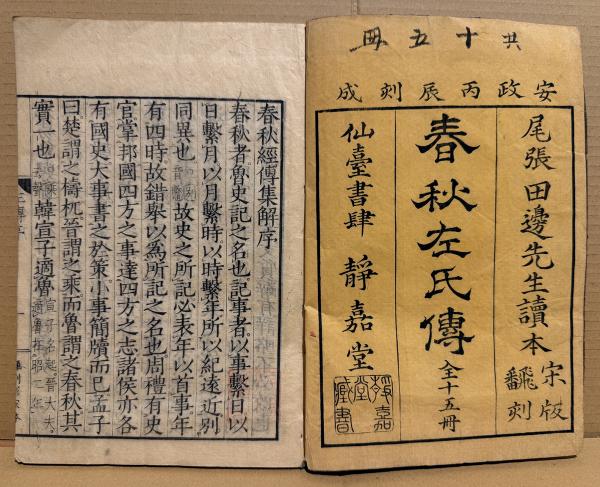 共十五冊
安政丙辰刻成
尾張田邊先生讀本
宋版
飜刻
春秋左氏傳
全十五冊
仙臺書肆 靜嘉堂
靜嘉堂藏書
春秋經傳集解序
春秋者魯史記之名也記事者以事繫日以
日繫月以月繫時以時繫年所以紀遠近別
同異也故史之所記必表年以首事年
有四時故錯舉以為所記之名也周禮有史
官掌邦國四方之事達四方之志諸侯亦各
有國史大事書之於策小事簡牘而已孟子
曰楚謂之檮杌晉謂之乘而魯謂之春秋其
實一也韓宣子適魯
宣子名起晉大夫
適魯在昭二年